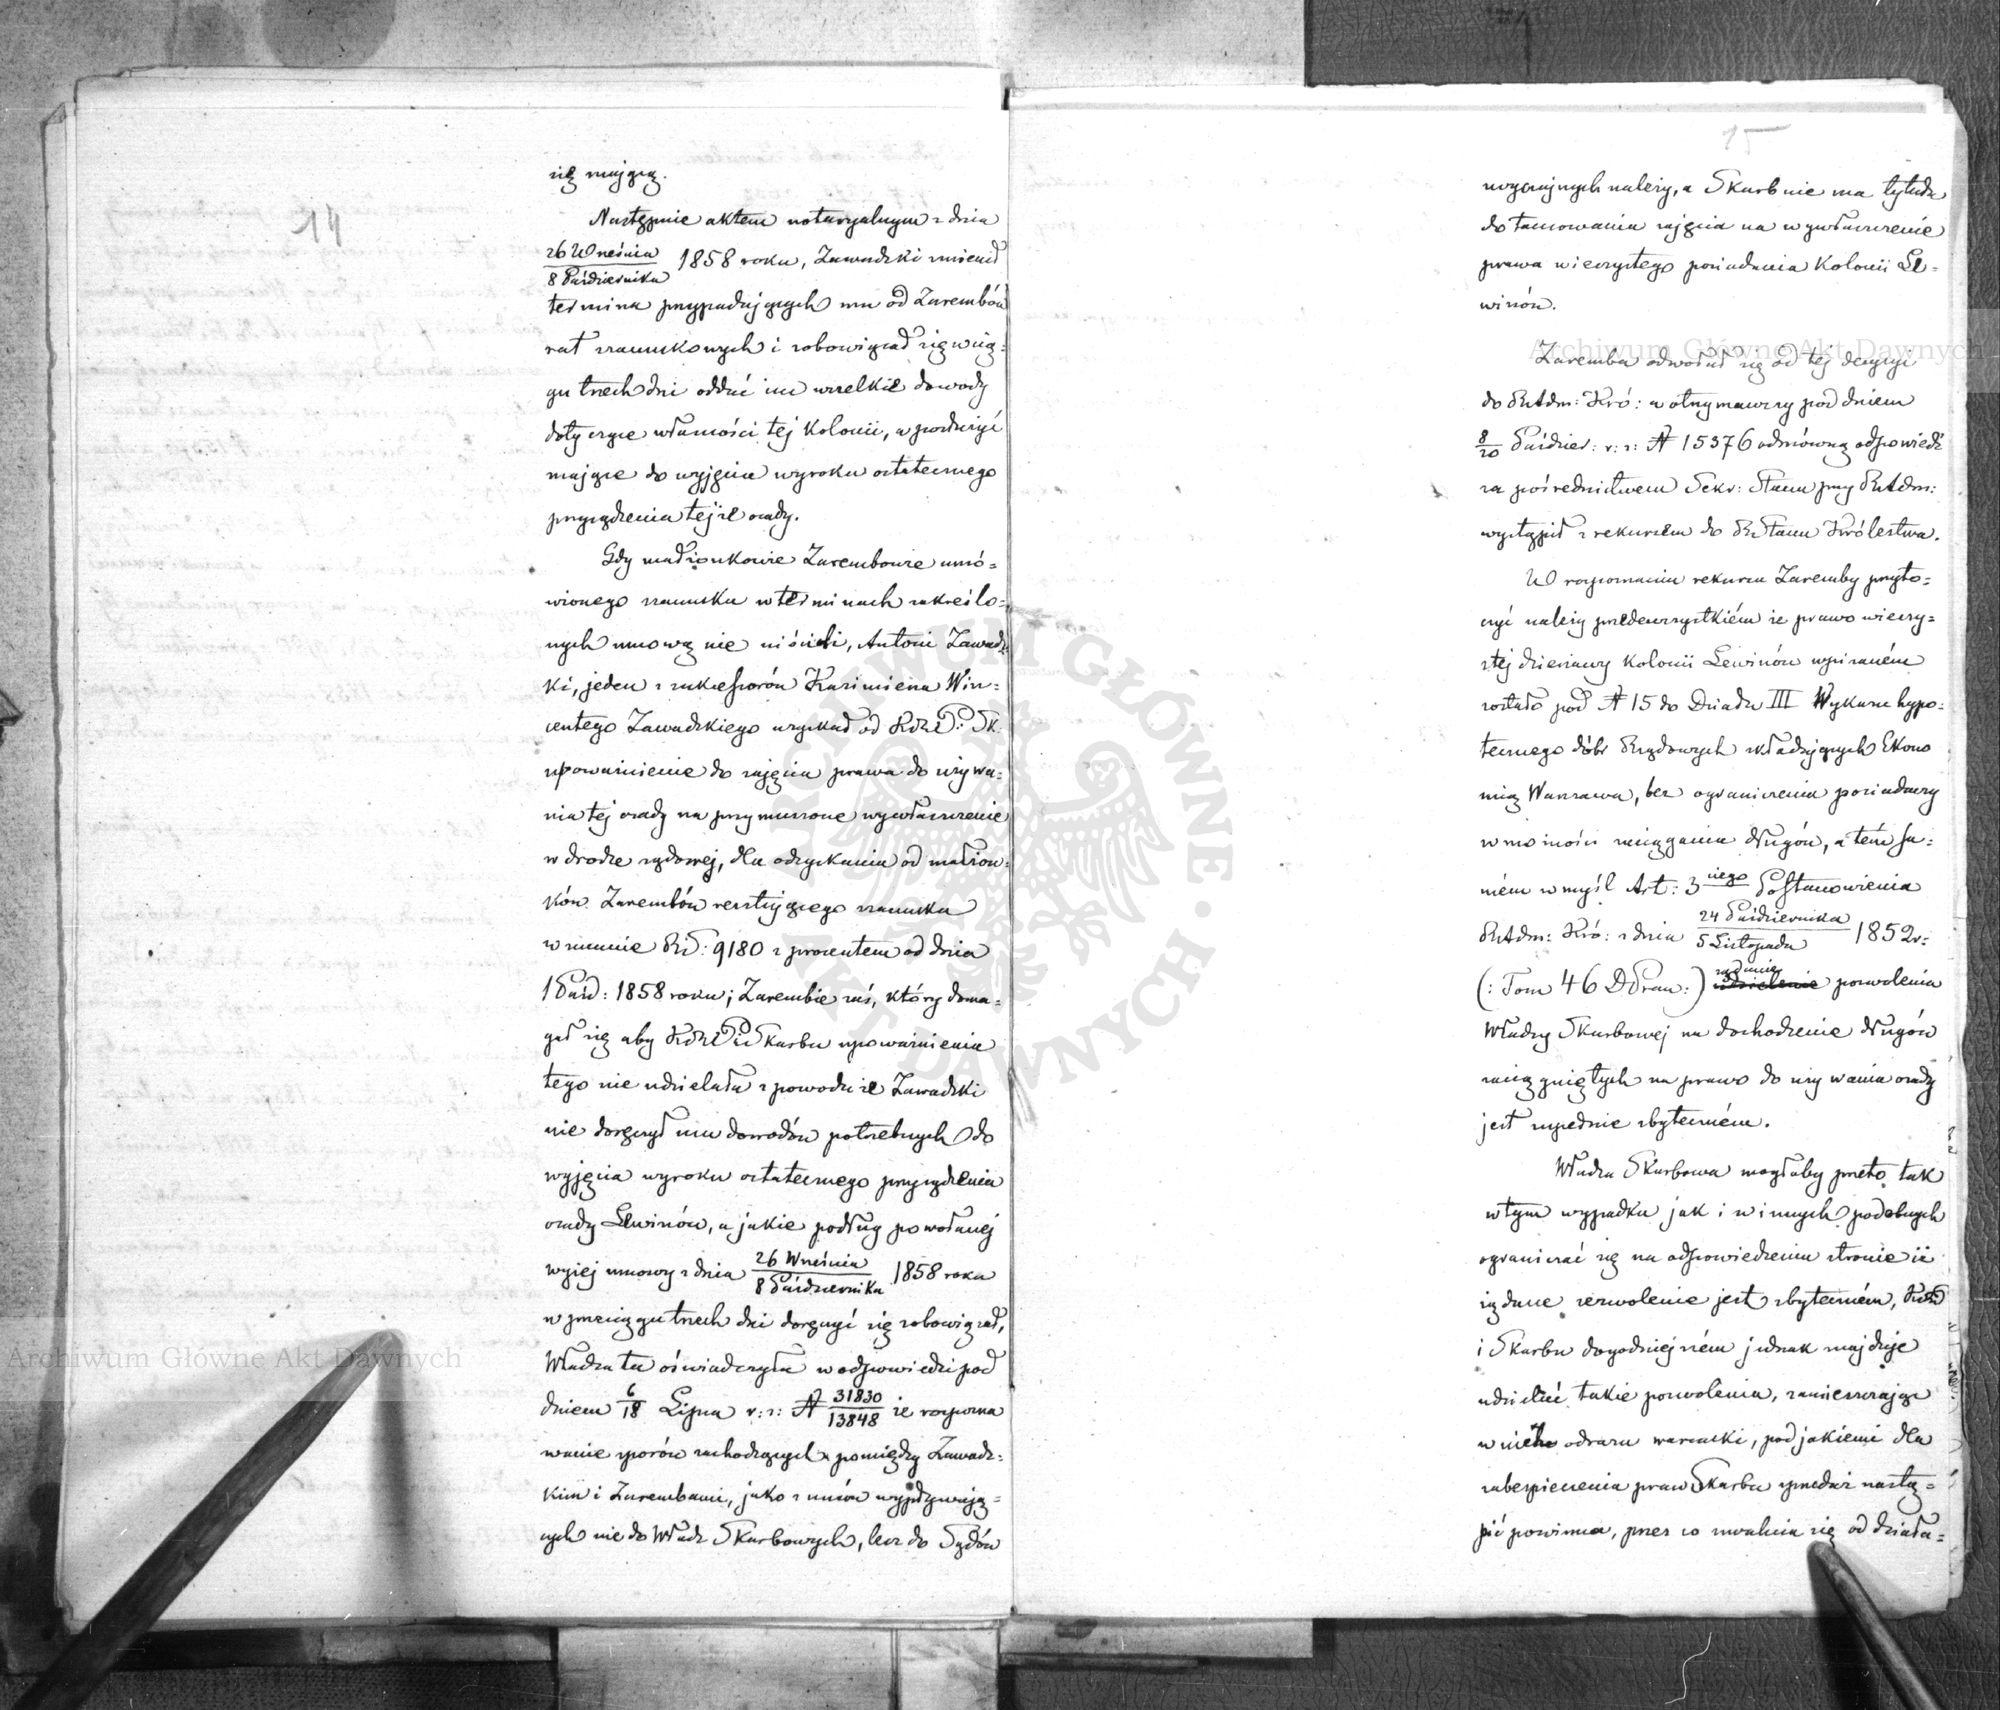 14
się mającą.
Następnie aktem notaryalnym z dnia
26 Września / 8 Października 1858 roku, Zawadzki zmienił
termina przypadających mu od Zarembów
rat szacunkowych i zobowiązał się w cią=
gu trzech dni oddać im wszelkie dowody
dotyczące własności tej Kolonii, a posłużyć
mające do wyjęcia wyroku ostatecznego
przysądzenia tejże osady.
Gdy małżonkowie Zarembowie umó=
wionego szacunku w terminach zakreślo=
nych umową nie uiścili, Antoni Zawadz
ki, jeden z sukcessorów Kazimierza Win=
centego Zawadzkiego uzyskał od KRziP: Sk:
upoważnienie do zajęcia prawa do używa=
nia tej osady na przymuszone wywłaszczenie
w drodze sądowej, dla odzyskania od małżon=
ków Zarembów resztującego szacunku
w summie RS: 9180 z procentem od dnia
1 Paźd: 1858 roku; Zarembie zaś, który doma=
gał się aby KRziP i Skarbu upoważnienia
tego nie udzielała z powodu że Zawadzki
nie doręczył mu dowodów potrzebnych do
wyjęcia wyroku ostatecznego przysądzenia
osady Lewinów, a jakie podług powołanej
wyżej umowy z dnia 26 Września / 8 Października 1858 roku
w przeciągu trzech dni doręczyć się zobowiązał,
Władza ta oświadczyła w odpowiedzi pod
dniem 6/18 Lipca r: z: № 31830/13848 że rozpozna
wanie sporów zachodzących pomiędzy Zawadz=
kim i Zarembami, jako z umów wypływają=
cych nie do Władz Skarbowych, lecz do Sądów
15
zwyczajnych należy, a Skarb nie ma tytułu
do tamowania zajęcia na wywłaszczenie
prawa wieczystego posiadania Kolonii Le=
winów.
Zaremba odwołał się od tej decyzyi
do RAdm: Kró: a otrzymawszy pod dniem
8/20 Paździer: r: z: № 15376 odmówną odpowiedź
za pośrednictwem Sekr: Stanu przy RAdm:
wystąpił z rekursem do RStanu Królestwa.
W rozpoznaniu rekursu Zaremby przyto=
czyć należy przedewszystkiém że prawo wieczy=
stej dzierżawy Kolonii Lewinów wpisaném
zostało pod № 15 do Działu III Wykazu hypo=
tecznego dóbr Rządowych składających Ekono
mią Warszawa, bez ograniczenia posiadaczy
w możności zaciągania długów, a tém sa=
mém w myśl Art: 3niego Postanowienia
RAdm: Kró: z dnia 24 Października / 5 Listopada 1852 r:
(: Tom 46 DPraw:) żądanie udzielenie pozwolenia
Władzy Skarbowej na dochodzenie długów
zaciągniętych na prawo do używania osady
jest zupełnie zbyteczném.
Władza Skarbowa mogłaby przeto tak
w tym wypadku jak i w innych podobnych
ograniczać się na odpowiedzeniu stronie iż
żądane zezwolenie jest zbyteczném, KRzi
i Skarbu dogodniejszém jednak znajduje
udzielać takie pozwolenia, zamieszczając
w nich odrazu warunki, pod jakiemi dla
zabezpieczenia praw Skarbu sprzedaż nastą=
pić powinna, przez co uwalnia się od działa=